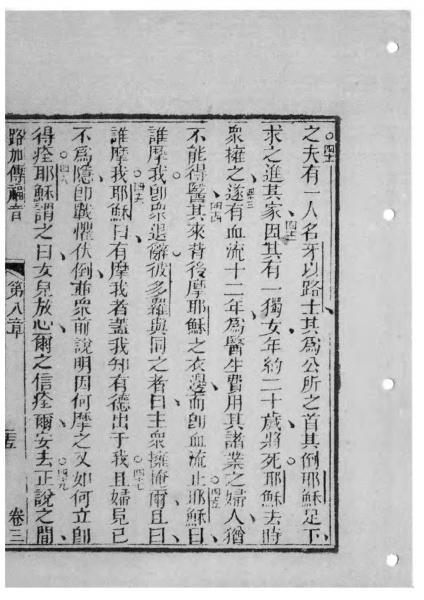 之夫有一人名牙以路士其為公所之首其倒耶穌足下
求之進其家因其有一獨女年約二十歲將死耶穌去時
眾擁之遂有血流十二年為醫生費用其諸業之婦人猶
不能得醫其來背後摩耶穌之衣邊而卽血流止耶穌曰
誰摩我卽眾退辭彼多羅與同之者曰主眾擁擠爾且曰
誰摩我耶穌曰有摩我者蓋我知有德出于我且婦見已
不為隱卽戰懼伏倒並眾前說明因何摩之又如何立卽
得痊耶穌謂之曰女兒放心爾之信痊爾安去正說之間
路加傳福音 第八章 卷三